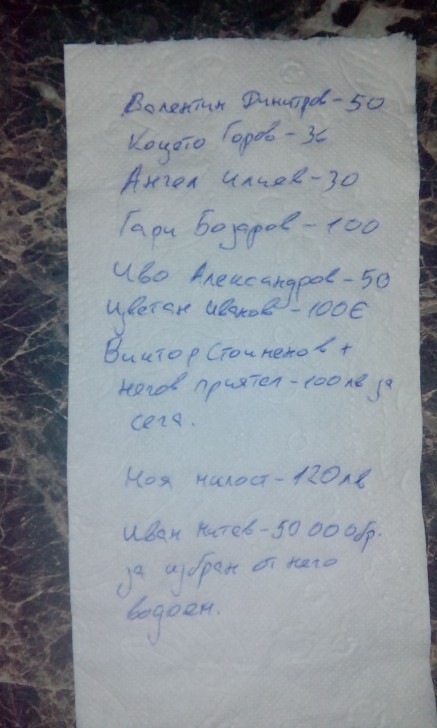 Валентин Димитров - 50
Коцето Горов - 36
Ангел Илиев - 30
Гари Бозаров - 100
Иво Александров - 50
Цветан Иванов - 100€
Виктор Стоименов +
негов приятел - 100 лв за
сега.
Моя милост - 120 лв
Иван - 50 000 бр.
за избран от него
водоем.